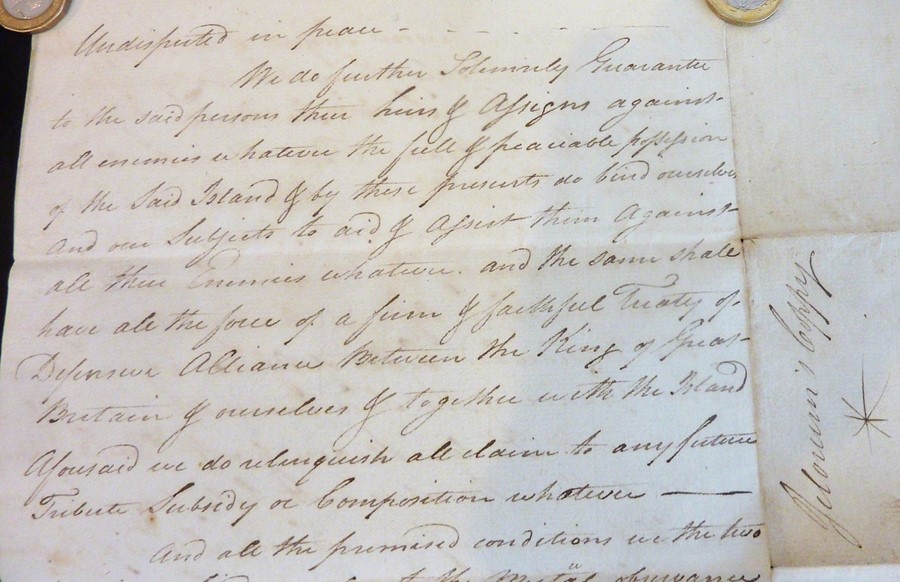 Undisputed in peace - - - - -
We do further Solemnly Guarantee
to the said persons their heirs & Assigns against
all enemies whatever the full & peaciable possession
of the Said Island & by these presents do bind ourselves
And our Subjects to aid & Assist them Against
all their Enemies whatever. and the same shall
have all the force of a firm & faithful Treaty of
Defensive Alliance Between the King of Great
Britain & ourselves & together with the Island
Aforesaid we do relinquish all claim to any future
Tribute Subsidy or Composition whatever —
And all the premised conditions we the two
to the Mutual observance
Coppy